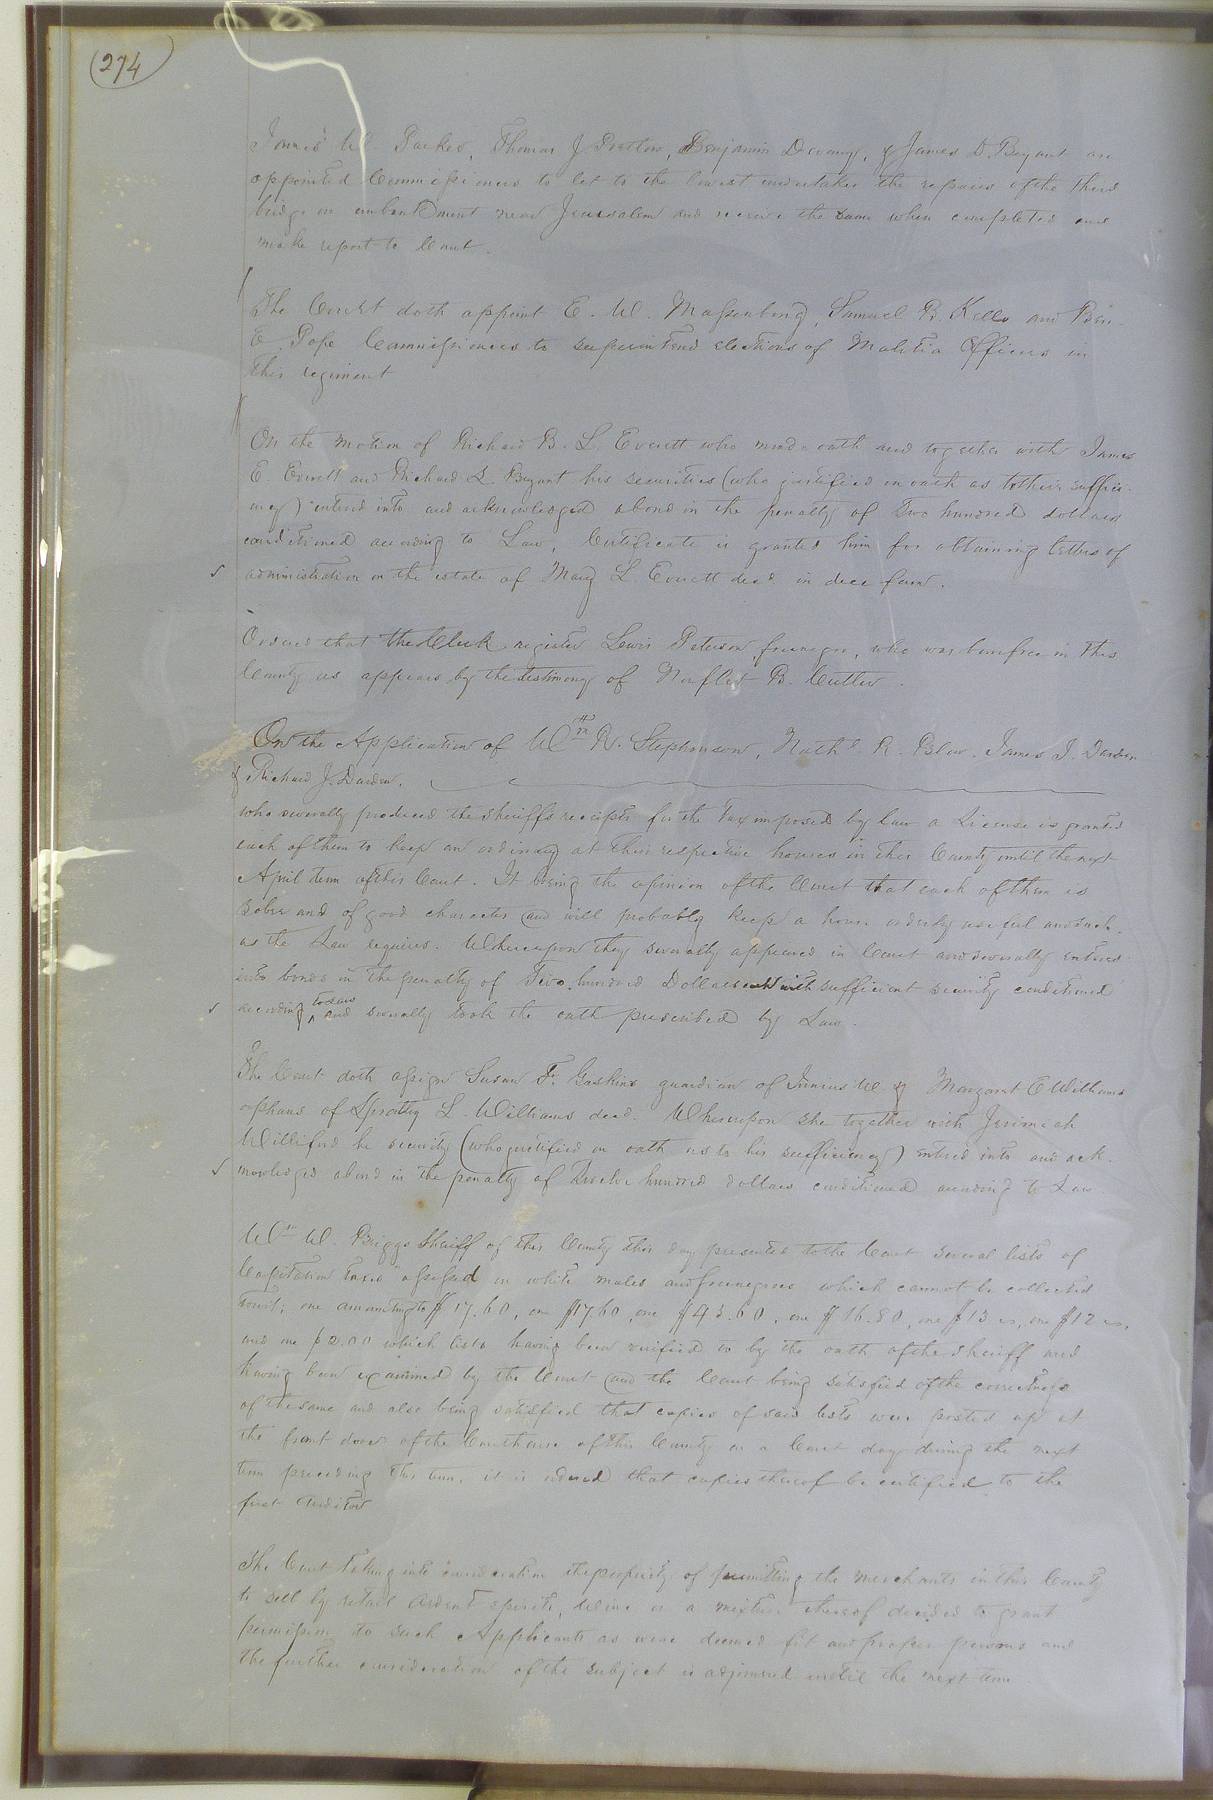 (274)
W. Parker, Thomas J Pretlow, Benjamin Devany, & James D. Bryant are
appointed Commissioners to let to the lowest undertaker the repairs of the Third
bridge on embankment near Jerusalem and receive the same when completed and
make report to Court.
The Court doth appoint E. W. Massenburg, Samuel B. Kello and Ben.
E. Pope Commissioners to superintend elections of Malitia Officers in
this regiment
On the motion of Richard B. L. Everett who made oath and together with James
E. Everett and Richard L. Bryant his securities (who justified on oath as to their suffici-
ency) entered into and acknowledged a bond in the penalty of Two hundred dollars
conditioned according to Law, Certificate is granted him for obtaining letters of
administration on the estate of Mary L. Everett decd. in due form.
Ordered that the Clerk register Lewis Peterson freenegro, who was bornfree in this
County as appears by the testimony of Norfleet B. Cutler.
On the Application of Wm R. Stephenson, Nathl R. Blow, James J. Darden
& Richard J. Darden.
who severally produced the sheriffs receipts for the Tax imposed by law a License is granted
each of them to keep an ordinary at their respective houses in this County until the next
April term of this Court. It being the opinion of the Court that each of them is
sober and of good character and will probably keep a house orderly useful and such
as the Law requires. Whereupon they severally appeared in Court and severally entered
into bonds in the penalty of Two hundred Dollars with sufficient security conditioned
according to law and severally took the oath prescribed by Law.
The Court doth assign Susan F. Gaskins guardian of Junius W & Margaret E Williams
orphans of L. Williams decd. Whereupon she together with Jerimiah
Williford he security (who justified on oath as to his sufficiency) entered into and ack-
nowledged a bond in the penalty of Twelve hundred dollars conditioned according to Law
Wm W. Briggs Sheriff of this County this day presented to the Court several lists of
Capitation taxes assessed on white males and freenegroes which cannot be collected
towit; one amounting to $17.60, one $17.60, one $43.60, one $16.80, one $13 , one $12 ,
and one $2.00 which lists having been verified by the oath of the sheriff and
having been examined by the Court and the Court being satisfied of the correctness
of the same and also being satisfied that copies of said lists were posted up at
the front door of the Courthouse of this County on a Court day during the next
term preceding this term, it is ordered that copies thereof be certified to the
first Auditor
The Court taking into consideration the propriety of permitting the merchants in this County
to sell by retail Ardent spirits, Wine or a mixture thereof decided to grant
permission to such Applicants as were deemed fit and proper persons and
the further consideration of the subject is adjourned until the next term